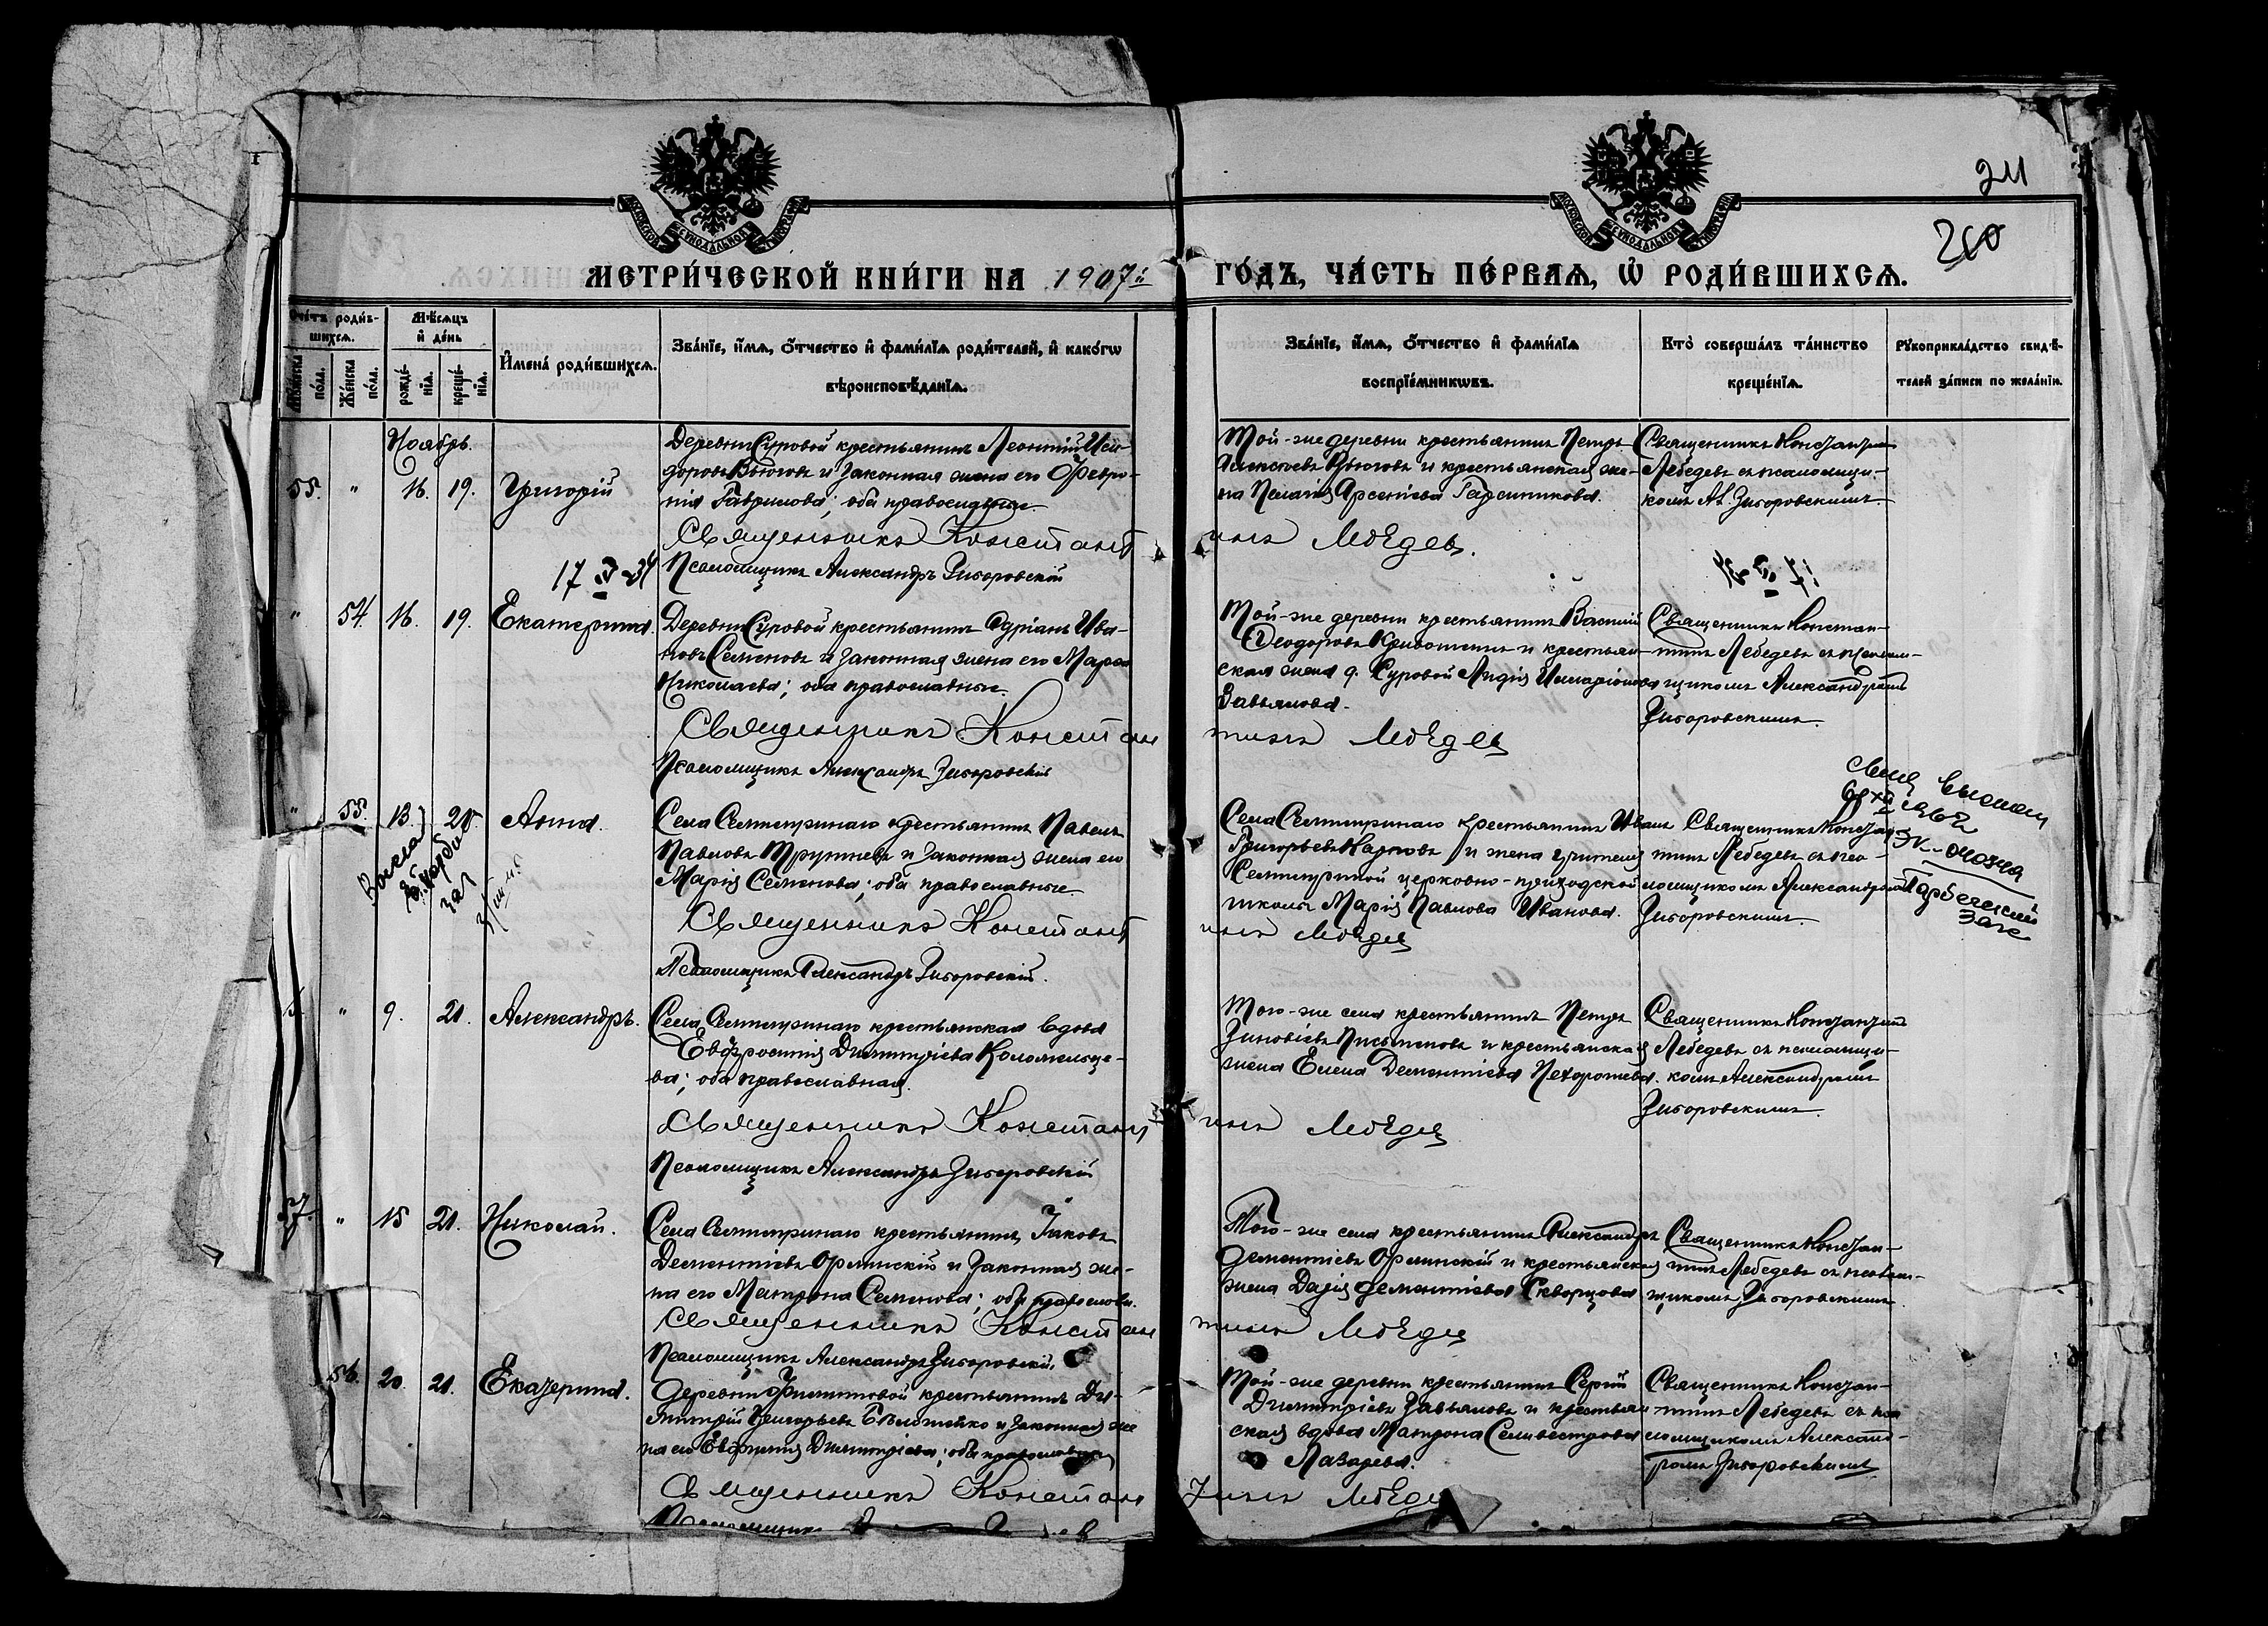 211
260
МОСКОВСКОЙ СѴНОДАЛЬНОЙ ТИПОГРАФІИ
МОСКОВСКОЙ СѴНОДАЛЬНОЙ ТИПОГРАФІИ
МЕТРИ́ЧЕСКОЙ КНИ́ГИ НА 1907й ГО́ДЪ, ЧА́СТЬ ПЕ́РВАѦ, Ѡ҆ РОДИ́ВШИХСѦ.
Счётъ роди́в-
шихсѧ.
Мꙋ́жеска по́ла.
Же́нска по́ла.
Мѣ́сѧцъ
и҆ де́нь
рожде́-
нїѧ.
креще́-
нїѧ.
И҆мена̀ роди́вшихсѧ.
Зва́нїе, и҆́мѧ, ѻ҆́тчество и҆ фами́лїѧ роди́телей, и҆ како́гѡ
вѣроисповѣ́данїѧ.
Зва́нїе, и҆́мѧ, ѻ҆́тчество и҆ фами́лїѧ
воспрїе́мникѡвъ.
Кто̀ соверша́лъ та́инство
креще́нїѧ.
Рꙋкоприкла́дство свидѣ́-
телей за́писи по жела́нїю.
Ноябрь.
55. " 16. 19. Григорій
Деревни Суровой крестьянинъ Леонтій Иси-
доровъ Вьюговъ и законная жена его Февро-
нія Гаврилова; оба православные.
Той-же деревни крестьянинъ Петръ
Алексѣевъ Вьюговъ и крестьянская же-
на Пелагія Арсеніева
Священникъ Константинъ
Лебедевъ съ псаломщи-
комъ Ал. Зигоровскимъ.
Священникъ Константинъ Лебедев.
Псаломщикъ Александръ Зигоровскій
17
" 54. 16. 19. Екатерина.
Деревни Суровой крестьянинъ Адріанъ Ива-
новъ Семеновъ и законная жена его Марѳа
Николаева; оба православные.
Той-же деревни крестьянинъ Василій
Ѳеодоровъ Кривошеинъ и крестьян-
ская жена д. Суровой Лидія Илларіонова
Завьялова.
Священникъ Констан-
тинъ Лебедевъ съ псалом-
щикомъ Александромъ
Зигоровскимъ.
Священникъ Константинъ Лебедев
Псаломщикъ Александръ Зигоровскій
" 55. 13. 20. Анна.
Села Семтетрнаго крестьянинъ Павелъ
Павловъ и законная жена его
Марія Семенова; оба православные.
Села Семтетрнаго крестьянинъ Иванъ
Григорьевъ Карповъ и жена
церковно-приходской
школы Марія Павлова Иванова.
Священникъ Констан-
тинъ Лебедевъ съ пса-
ломщикомъ Александромъ
Зигоровскимъ.
Священникъ Константинъ Лебедев
Псаломщикъ Александръ Зигоровскій.
" 9. 21. Александръ.
крестьянская вдова
Евфросинія Димитріева Коломельце-
ва; православная.
Того-же села крестьянинъ Петръ
Зиновіевъ и крестьянская
жена Елена Дементіева Нехорошева.
Священникъ Константинъ
Лебедевъ съ псаломщи-
комъ Александромъ
Зигоровскимъ.
Священникъ Константинъ Лебедев
Псаломщикъ Александръ Зигоровскій
57. " 15 21. Николай.
крестьянинъ Іаковъ
Дементіевъ Орлинскій и законная же-
на его Матрона Семенова; оба православн.
Того-же села крестьянинъ Александръ
Дементіевъ Орлинскій и крестьянская
жена Дарія Дементіева Скворцова
Священникъ Констан-
тинъ Лебедевъ съ псалом-
щикомъ Зигоровскимъ.
Священникъ Константинъ Лебедев
Псаломщикъ Александръ Зигоровскій.
56. 20. 21. Екатерина.
Деревни Филипповой крестьянинъ Ди-
митрій Григорьевъ и законная же-
на его Евфимія Димитріева; оба православные
Той-же деревни крестьянинъ Сергій
Димитріевъ Завьяловъ и крестьян-
ская вдова Матрона Селивестрова
Лазарева.
Священникъ Констан-
тинъ Лебедевъ съ пса-
ломщикомъ Александ-
ромъ Зигоровскимъ
Священникъ Константинъ Лебедев
Псаломщикъ